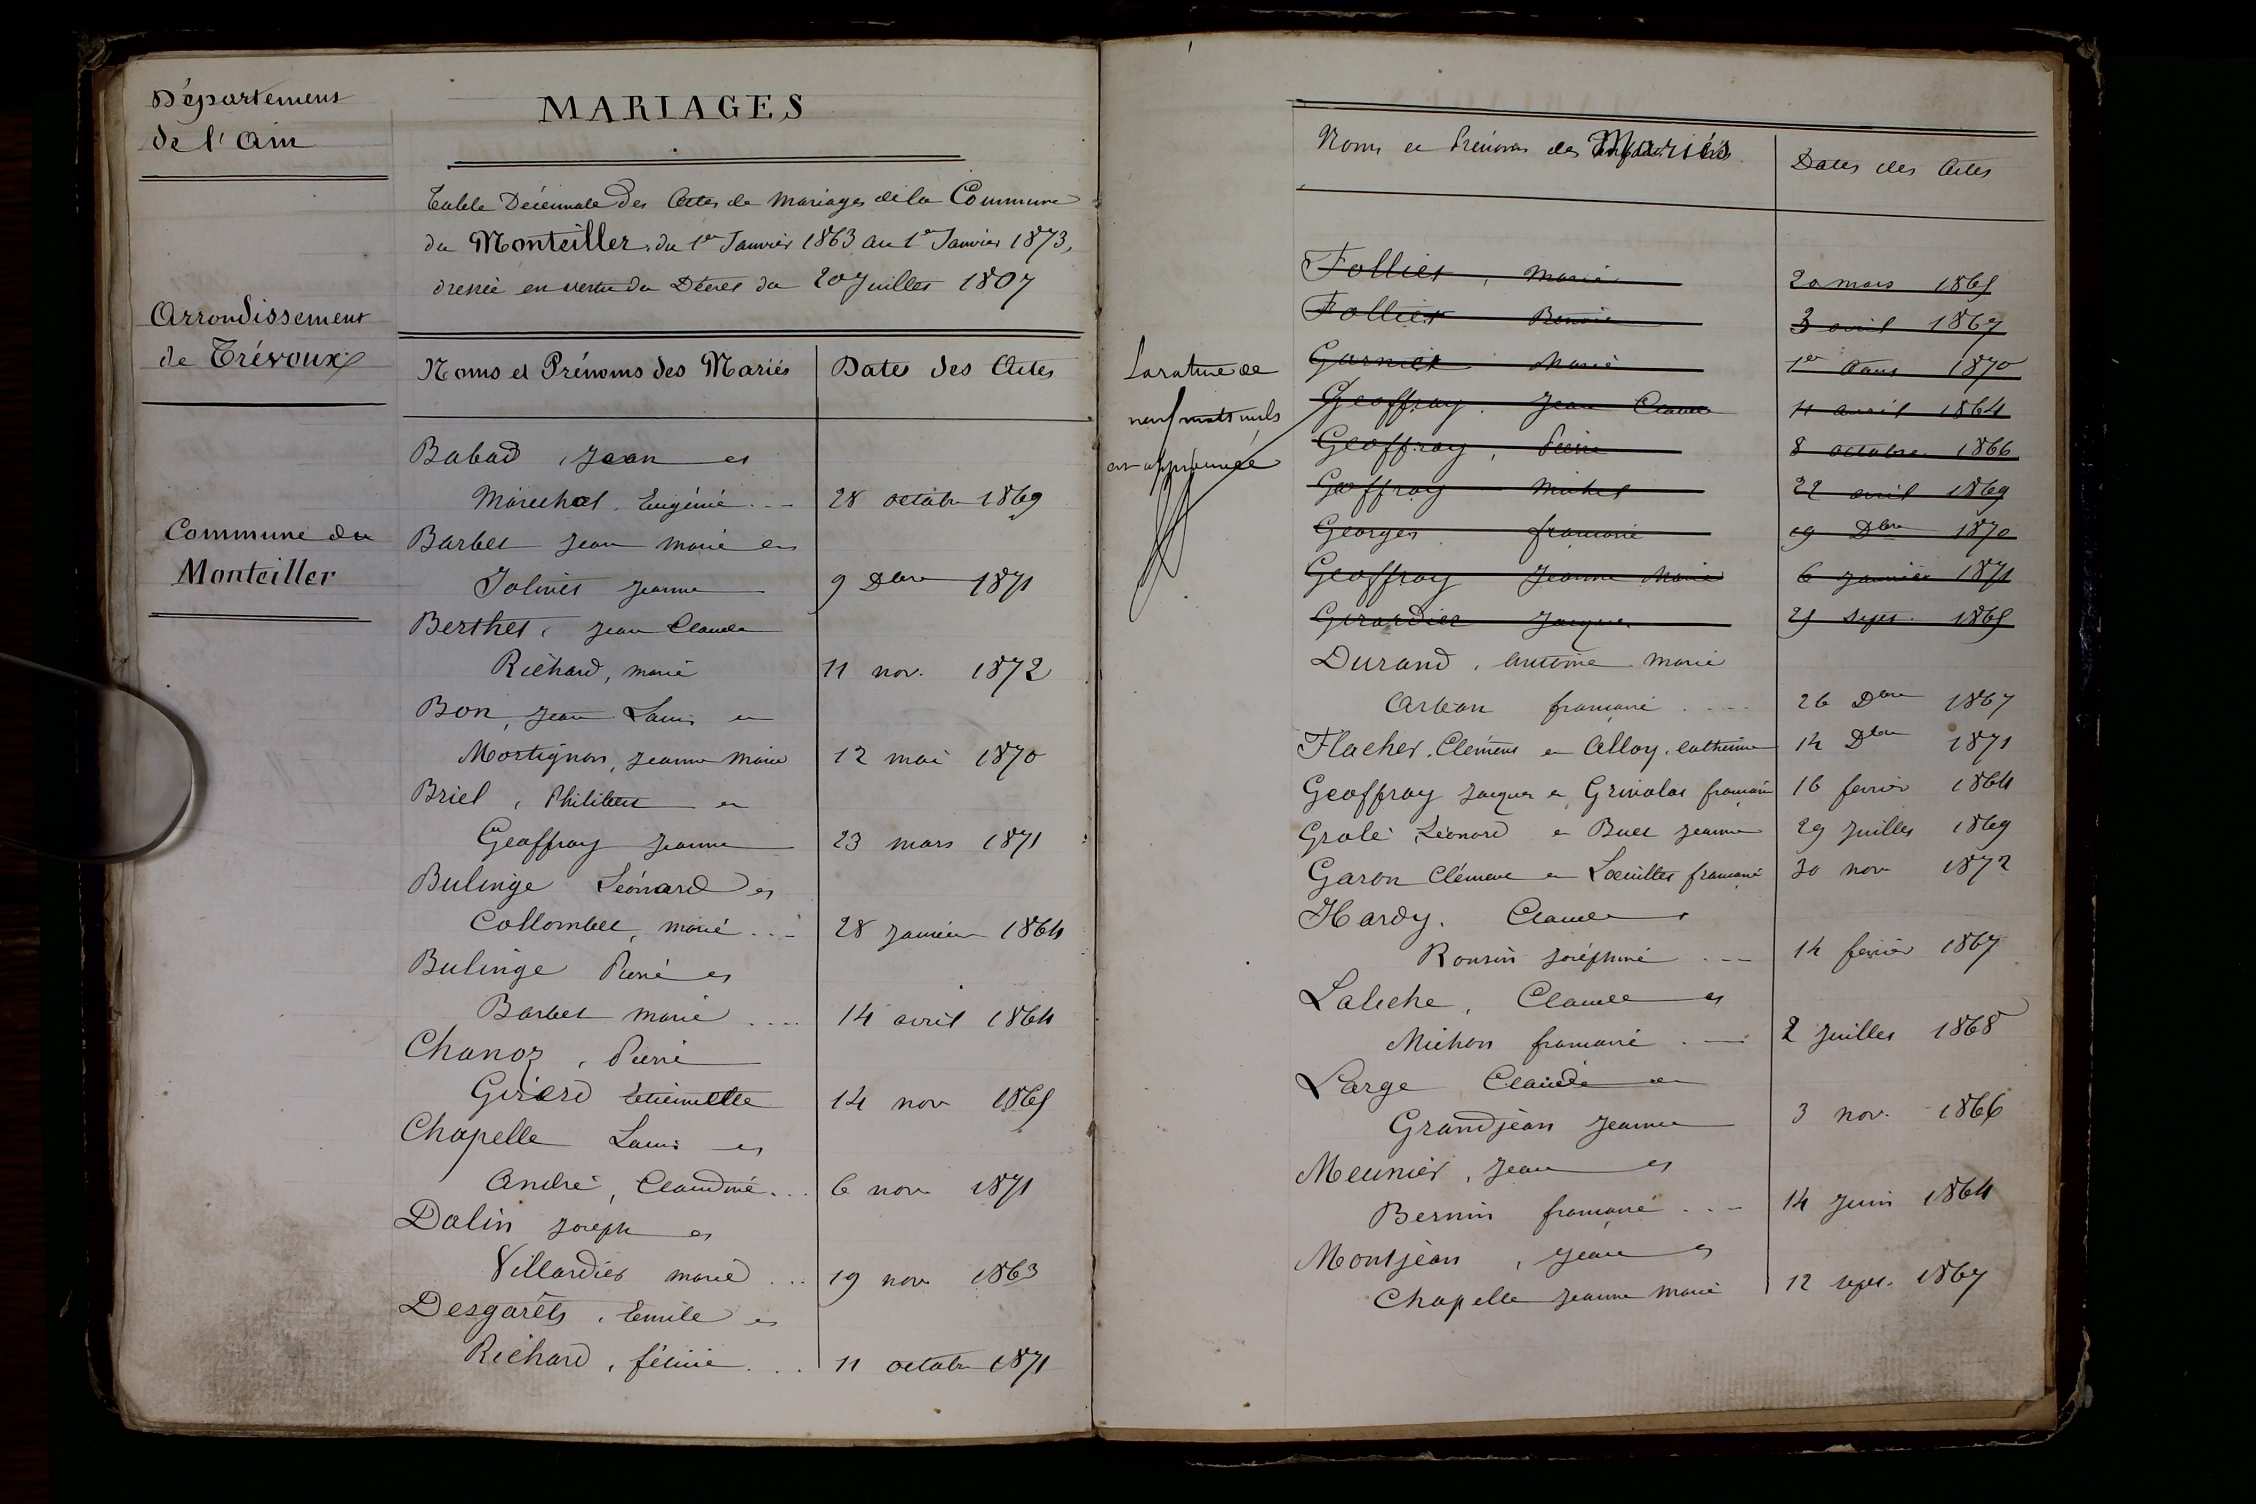 Département
de l'Ain
Arrondissement
de Trévoux
Commune du
Montellier
MARIAGES
Table Décennale des Actes de Mariages de la Commune
du Monteiller, du 1er Janvier 1863 au 1er Janvier 1873,
dressée en vertu du Décret du 20 Juillet 1807
Noms et Prénoms des Mariés | Dates des Actes
Babad, Jean et
Maréchal, Eugénie... 28 octobre 1869
Barbet Jean Marie et
Jolivet Jeanne 9 Dbre 1871
Berthet, Jean Claude
Richard, Marie 11 nov. 1872
Bon, Jean Louis et
Mortignon, Jeanne Marie 12 mai 1870
Briel, Philibert et
Geoffray Jeanne 23 mars 1871
Bulinge Léonard et
Collombet, Marie... 28 Janvier 1864
Bulinge Pierre et
Barbet Marie.... 14 avril 1864
Chanoz, Pierre
Girard Etiennette 14 nov 1865
Chapelle Louis et
André, Claudine... 6 nov 1871
Dalin Joseph et
Villardier Marie... 19 nov 1863
Desgarêts, Emile et
Richard, félicie.... 11 octobre 1871
Noms et Prénoms des Mariés | Dates des Actes
La rature de
neuf mots nuls
est approuvée
Folliet, Marie 20 mars 1865
Folliet Benoit 3 avril 1867
Garnier Marie 1er 1870
Geoffray, Jean Claude 11 avril 1864
Geoffray, Pierre 8 octobre 1866
Geoffray Michel 22 avril 1869
Georges françoise 19 Dbre 1870
Geoffray Jeanne Marie 6 Janvier 1871
Girardier Jacques 29 sept. 1865
Durand, Antoine Marie
Arban françoise.... 26 Dbre 1867
Flacher, Clément et Alloy, Catherine 14 Dbre 1871
Geoffray Jacques et Grivolas françoise 16 fevrier 1864
Grolé Léonard et Buet Jeanne 29 Juillet 1869
Garon Clément et Lœuillet françoise 30 nov 1872
Hardy, Claude et
Ronsin Joséphine... 14 février 1867
Labiche, Claude et
Michon françoise... 2 Juillet 1868
Large Claude et
Grandjean Jeanne 3 nov. 1866
Meunier, Jean et
Bernin françoise... 14 Juin 1864
Montjean, Jean et
Chapelle Jeanne Marie 12 sept. 1867